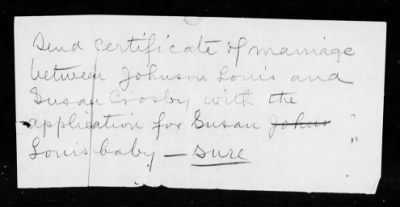 Send certificate of marriage
between Johnson Louis and
Susan Crosby with the
application for Susan Johns "
Louis baby — sure "